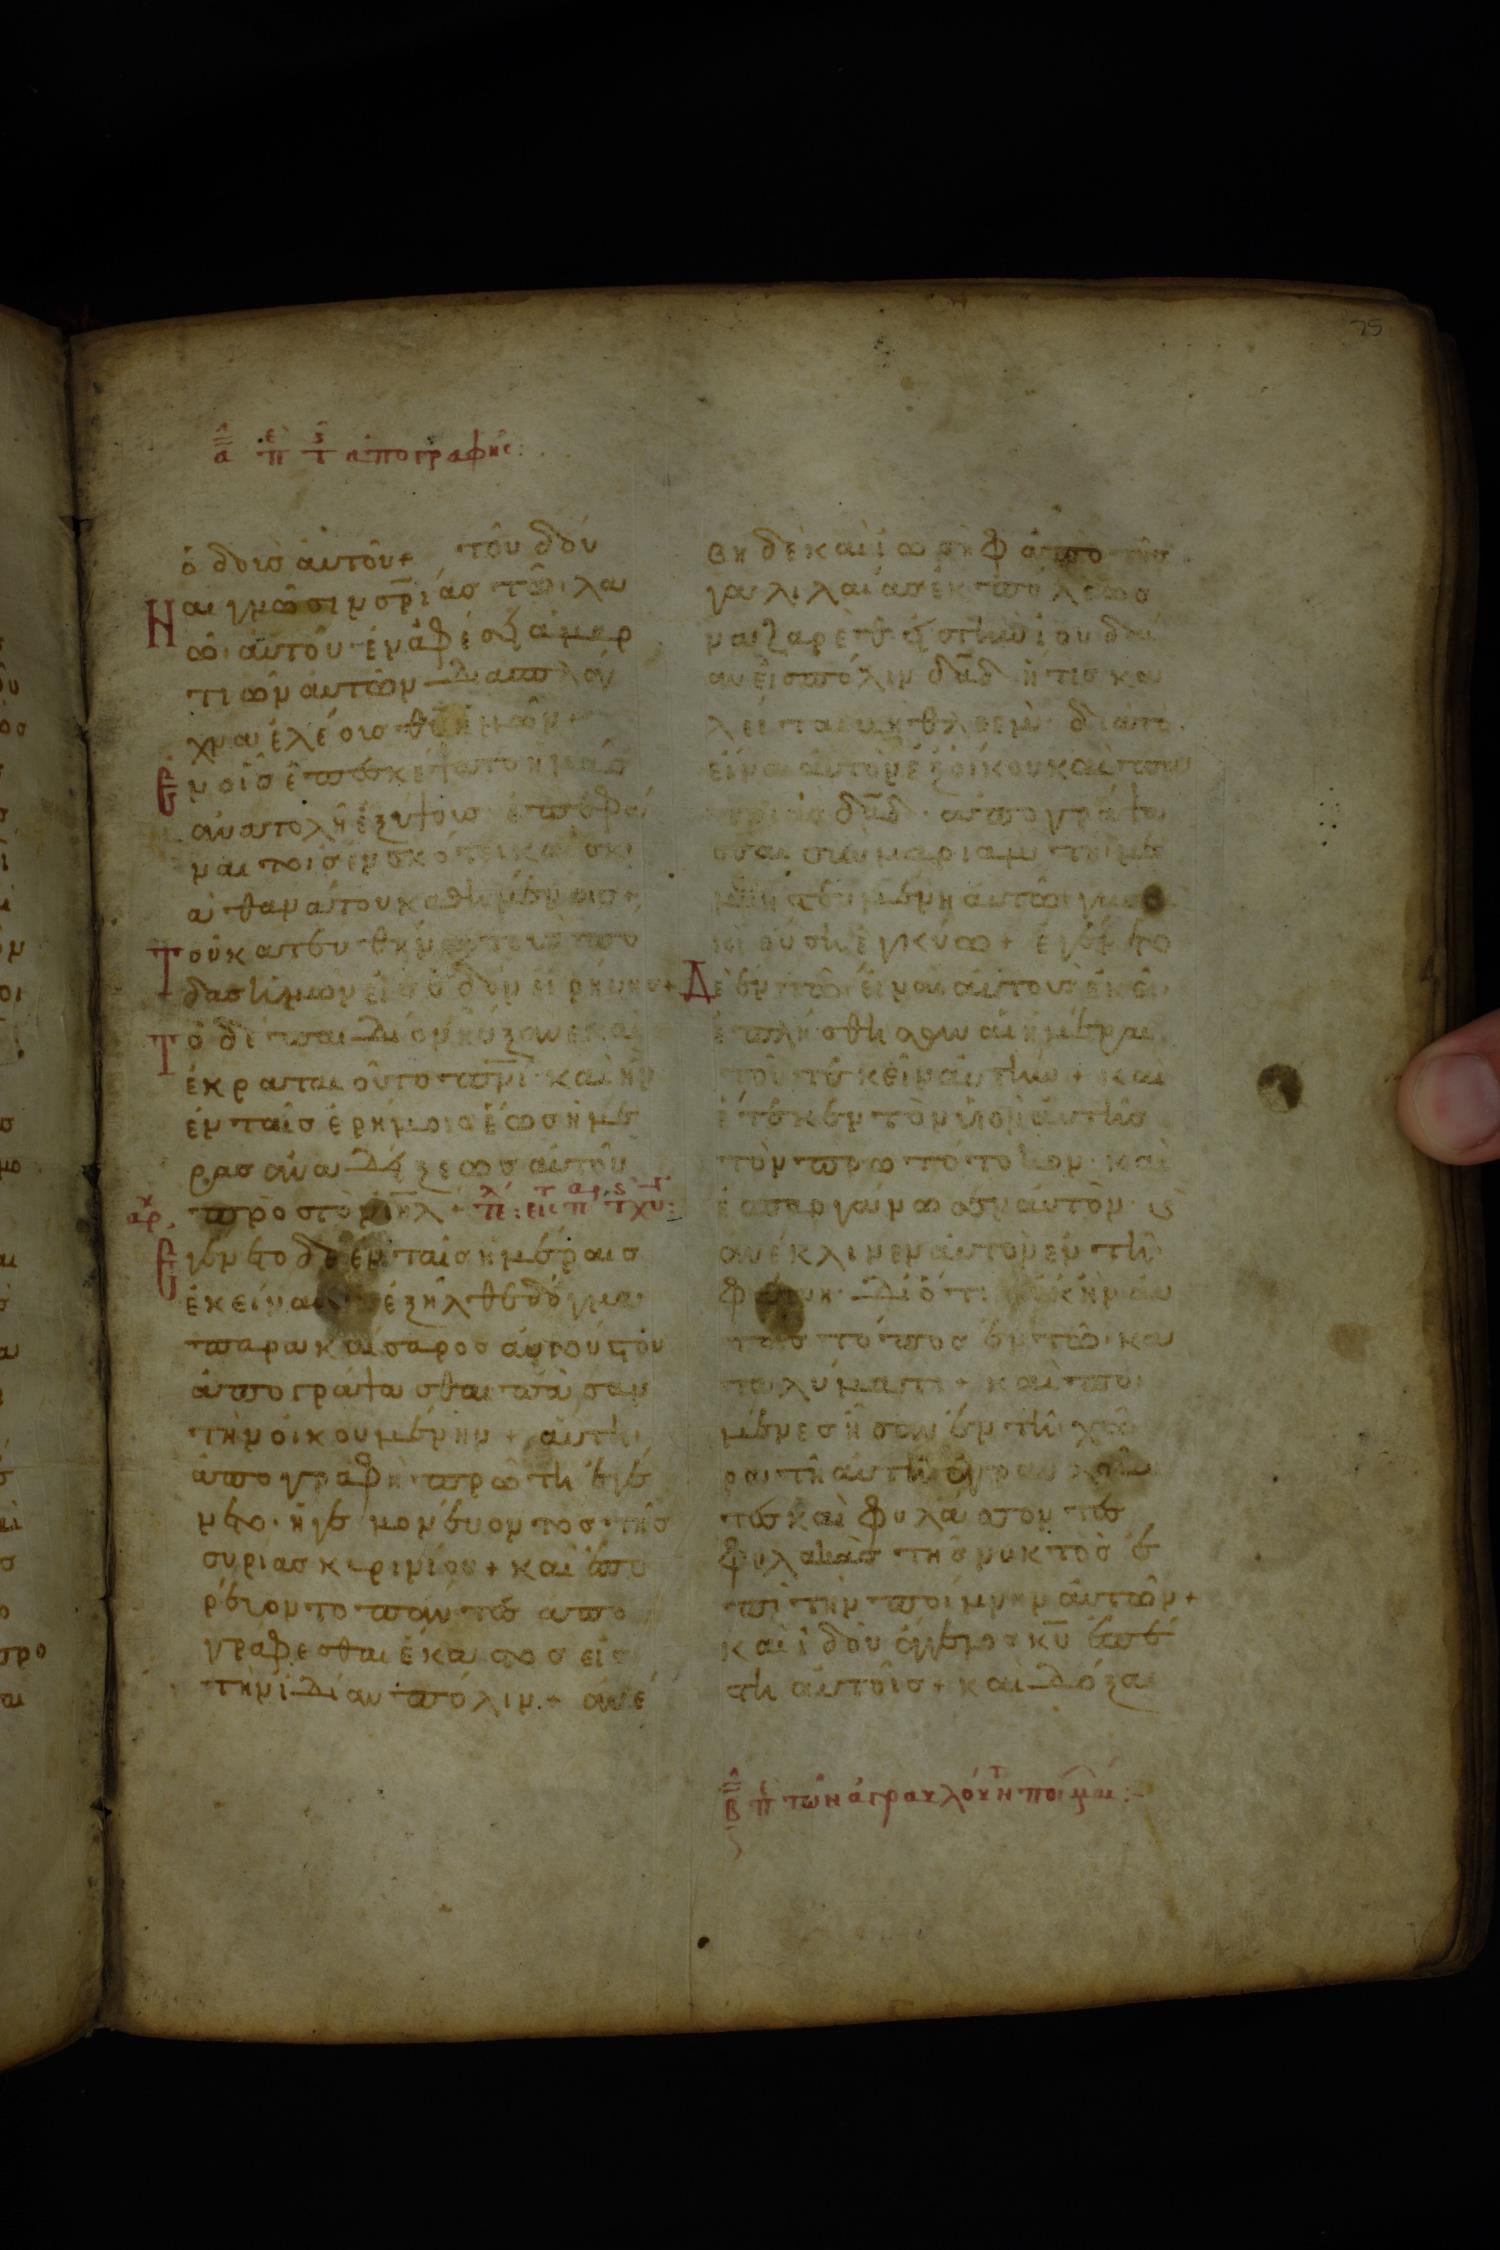 75
α π τ απογραφης:
ὁδοὺς αὐτοῦ + τοῦ δοῦ
ναι γνῶσιν σρ̅ιας τῶ λα
ῶ αὐτοῦ· ἐν ἀφέσει ἁμαρ
τιῶν αὐτῶν διὰ σπλάγ
χνα ἐλέους θυ ἡμῶν +
Ἐν οἷς ἐπεσκέψατο ἡμᾶς
ἀνατολὴ ἐξ ὕψους ἐπιφᾶ
ναι τοῖς ἐν σκότει καὶ σκι
ᾶ θανάτου καθημένοις +
Τοῦ κατευθῆναι τοὺς πό
δας ἡμῶν εἰς ὁδὸν εἰρήνης +
Τὸ δὲ παιδίον ηὔξανε καὶ
ἐκραταιοῦτο πν̅ι· καὶ ἦν
ἐν ταῖς ἐρήμοις ἕως ἡμέ
ρας ἀναδείξεως αὐτοῦ
πρὸς τὸν ιη̅λ +
Ἐγένετο δὲ ἐν ταῖς ἡμέραις
ἐκείναις ἐξῆλθε δόγμα
παρὰ καίσαρος αὐγούστου
ἀπογράψασθαι πᾶσαν
τὴν οἰκουμένην + αὕτη
ἀπογραφὴ πρώτη ἐγέ
νετο· ἡγεμονεύοντος τῆς
συρίας κυρινίου + καὶ ἐπο
ρεύοντο πάντες ἀπο
γράφεσθαι ἕκαστος εἰς
τὴν ἰδίαν πόλιν + ἀνέ
βη δὲ καὶ ἰωσὴφ ἀπὸ τῆς
γαλιλαίας ἐκ πόλεως
ναζαρὲτ εἰς τὴν ἰουδαί
αν εἰς πόλιν δα̅δ ἥτις κα
λεῖται βηθλεέμ· διὰ τὸ
εἶναι αὐτὸν ἐξ οἴκου καὶ πα
τριᾶς δα̅δ· ἀπογράψα
σθαι σὺν μαριὰμ τῆ με
μνηστευμένη αὐτῶ γυναι
κὶ οὔση ἐγκύω + ἐγένετο
Δὲ ἐν τῶ εἶναι αὐτοὺς ἐκεῖ
ἐπλήσθησαν αἱ ἡμέραι
τοῦ τεκεῖν αὐτὴν + καὶ
ἔτεκεν τὸν υἱὸν αὐτῆς
τὸν πρωτότοκον· καὶ
ἐσπαργάνωσεν αὐτὸν· καὶ
ἀνέκλινεν αὐτὸν ἐν τῆ
φάτνη· διότι οὐκ ἦν αὐ
τοῖς τόπος ἐν τῶ κα
ταλύματι + καὶ ποι
μένες ἦσαν ἐν τῆ χώ
ρα τῆ αὐτῆ ἀγραυλοῦν
τες καὶ φυλάσσοντες
φυλακὰς τῆς νυκτὸς ἐ
πὶ τὴν ποίμνην αὐτῶν +
καὶ ἰδοὺ ἄγγελος κυ̅ ἐπέ
στη αὐτοῖς + καὶ δόξα
β π τῶν ἀγραυλούντ ποιμαι: